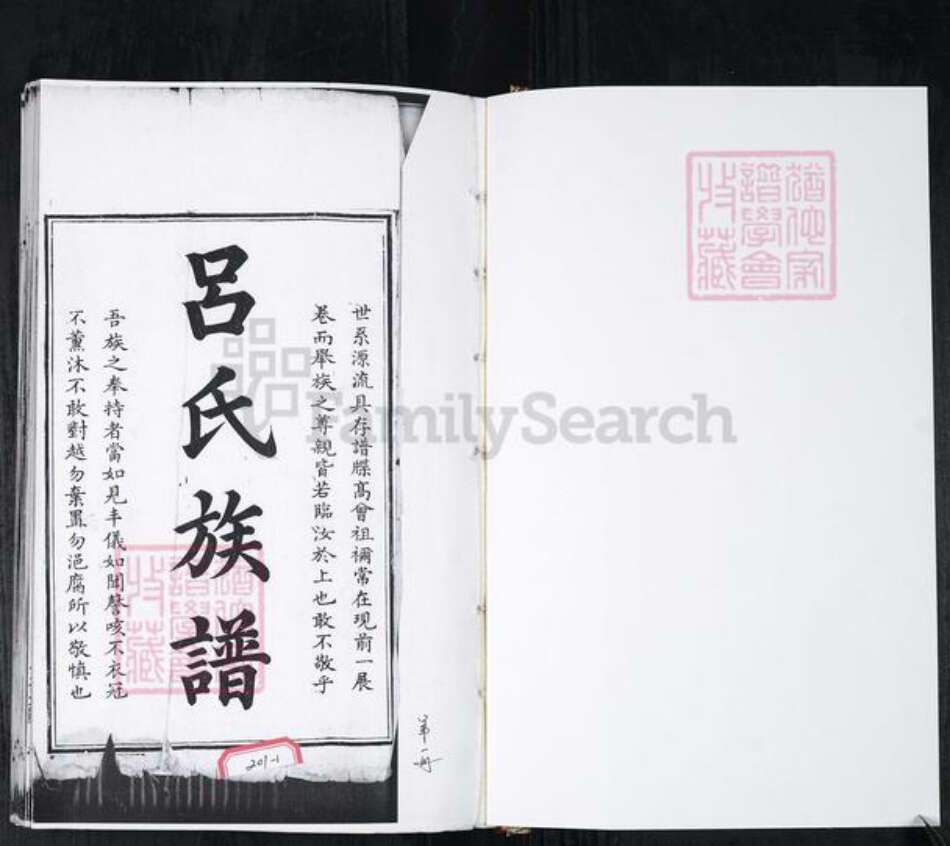 猶他家
譜學會
收藏
世系源流具存譜牒高曾祖禰常在現前一展
卷而舉族之尊親皆若臨汝於上也敢不敬乎
呂氏族譜
吾族之奉持者當如見丰儀如聞謦咳不衣冠
不薰沐不敢對越勿棄置勿浥腐所以敬慎也
猶他家
譜學會
收藏
第一冊
201-1
FamilySearch